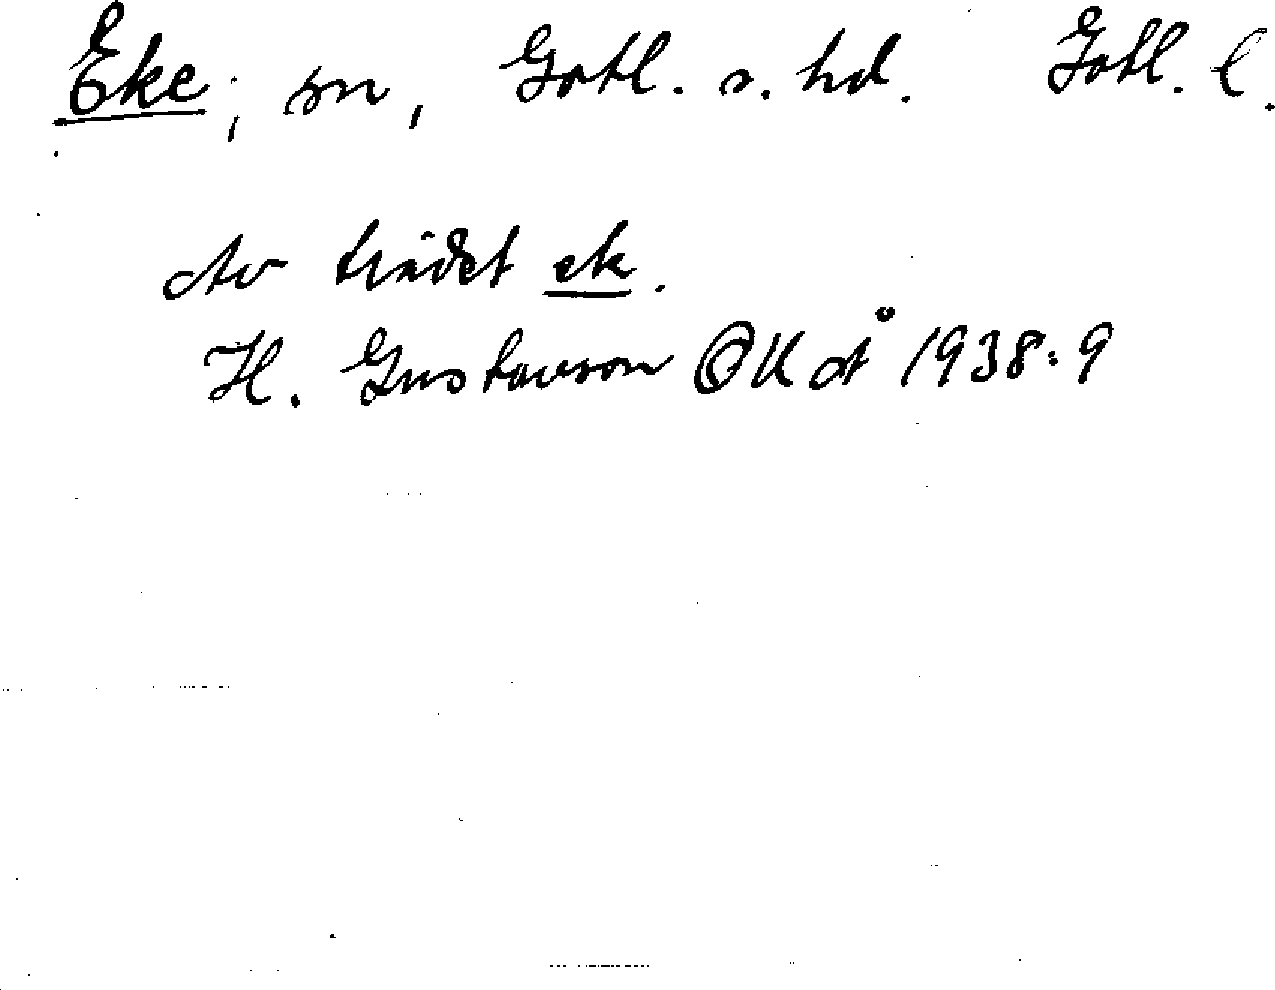 Eke; sn, Gotl. s. hd. Gotl. l.
Av trädet ek.
H. Gustavson OKat 1938:9